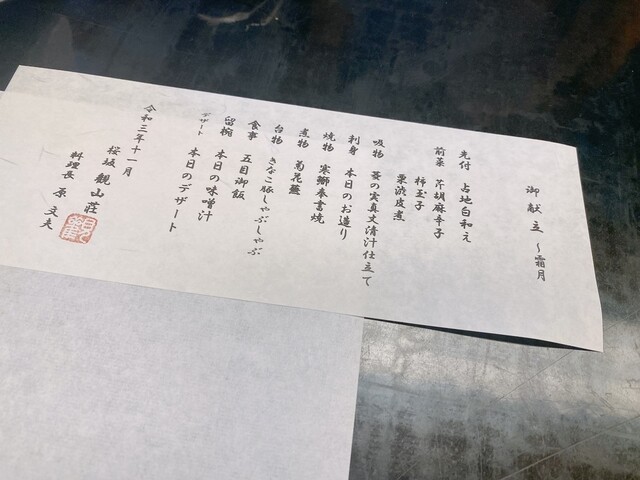 御献立 ~霜月
先付 占地白和え
前菜 芹胡麻辛子
柿玉子
栗渋皮煮
吸物 蚕の実真丈清汁仕立て
刺身 本日のお造り
焼物 寒鰤奉書焼
煮物 菊花蕪
台物 きなこ豚しゃぶしゃぶ
食事 五目御飯
留椀 本日の味噌汁
デザート 本日のデザート
令和三年十一月
桜坂 観山荘
料理長 原 文夫